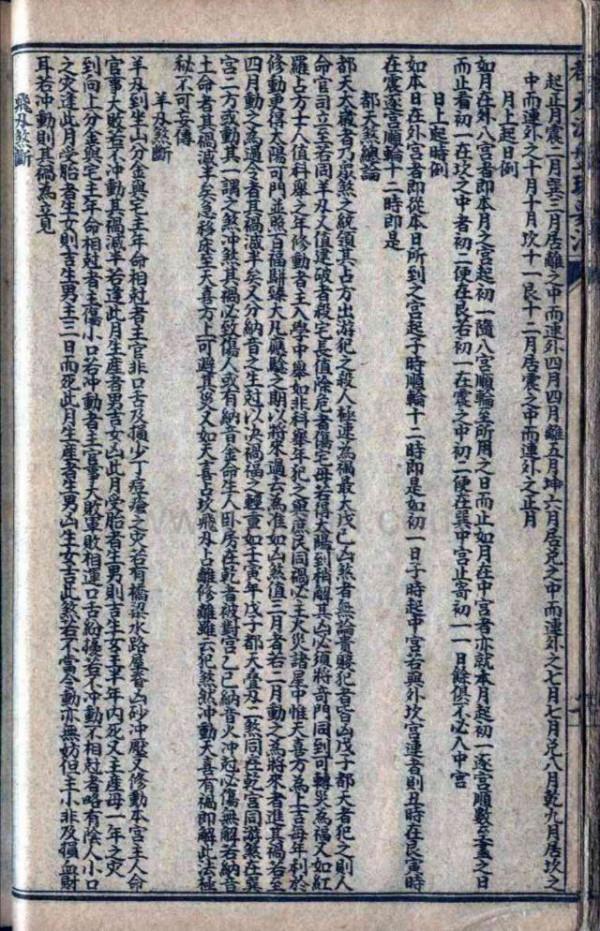 起正月震二月巽三月居離之中而連外四月四月離五月坤六月居兌之中而連外之七月七月兌八月乾九月居坎之
中而連外之十月十月坎十一艮十二月居震之中而連外之正月
月上起日例
如月在外八宮者即本月之宮起初一隨八宮順輪至所用之日而止如月在中宮者亦就本月起初一逐宮順數至盡之日
而止看初一在坎之中者初二便在艮若初一在震之中初二便在巽中宮止寄初一一日餘俱不必入中宮
日上起時例
如本日在外宮者即從本日所到之宮起子時順輪十二時即是如初一日子時起中宮若與外坎宮連者則丑時在艮寅時
在震逐宮順輪十二時即是
都天煞總論
都天大煞者乃眾煞之統領其占方出游犯之殺人極速為禍最大戊己凶煞者無論貴賤犯者皆凶戊子都天者犯之則人
命官司立至若同羊刃人值建破者殺宅長值除危者傷宅母若得太陽到稍解其凶必須將奇門同到可轉災為福又如紅
羅占方士人值科舉之年修動者主入學中舉如非科舉年犯之與庶民同禍必主火災諸星中惟天喜方為上吉每年利於
修動更得太陽可門並照百福駢臻大凡應驗之期以將來過去為准如凶煞值三月者若二月動之為將來者進其禍若至
四月動之為過令者其禍減半矣又分納音之生尅以決禍福之輕重如壬寅年戊子都天叠刃二煞同在乾宮同游煞在巽
宮二方或動其一謂之煞沖煞其禍必致傷人或有納音金命生人臥房在乾者破對宮乙巳納音火沖尅必傷無解若納音
土命者其禍減半矣急移床至天喜方上可避其災又如天喜占坎飛刃占離修離雖云犯煞然沖動天喜有禍即解此法極
秘不可妄傳
羊刃煞斷
羊刃到坐山分金與宅主年命相尅者主官非口舌及損少丁痘瘡之災若有橋梁水路屋脊凶砂沖壓又修動本宮主人命
官事大敗若不沖動其禍減半若逢此月生產者男吉女凶此月受胎者生男則吉生女主半年內死又主產母一年之災
到向上分金與宅主年命相尅者主傷小口若沖動者主官事大敗軍敗相連口舌紛擾若不沖動不相尅者略有陰人小口
之災逢此月受胎者生女則吉生男主二日而死此月生產者生男凶生女吉此煞若不當令動亦無妨但主小非及損血財
耳若沖動則其禍為立見
飛刃煞斷